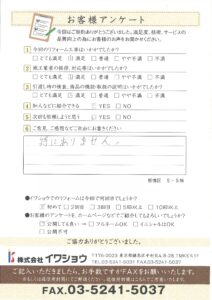 お客様アンケート
この度はご契約ありがとうございました。満足度、技術、サービスの
品質向上の為にお客様のお声をお聞かせください。
1 今回のリフォーム工事はいかがでしたか?
□とても満足 □満足 □普通 □やや不満 □不満
2 施工業者の挨拶、対応等はいかがでしたか?
□とても満足 □満足 □普通 □やや不満 □不満
3 引渡し時の検査、商品の機能・取扱説明はいかがでしたか?
□とても満足 □満足 □普通 □やや不満 □不満
4 知人などに紹介できる □YES □NO
5 次回も依頼しようと思う □YES □NO
6 ご意見、ご感想などご自由にお書きください
特にありません。
S・S様
●イワショウでのリフォームは今回で何回目ですか?
□初めて □2回目 □3回目 □5回以上 □10回以上
●お客様のアンケートを、ホームページなどでご紹介してもよろしいでしょうか?
□公開しても良い → □フルネームOK □イニシャルOK
□公開不可
ご協力ありがとうございました。
株式会社イワショウ
TEL.03-5241-5031 FAX.03-5241-5037
ご記入いただきましたら、お手数ですがFAXをお願いいたします。
FAX.03-5241-5037